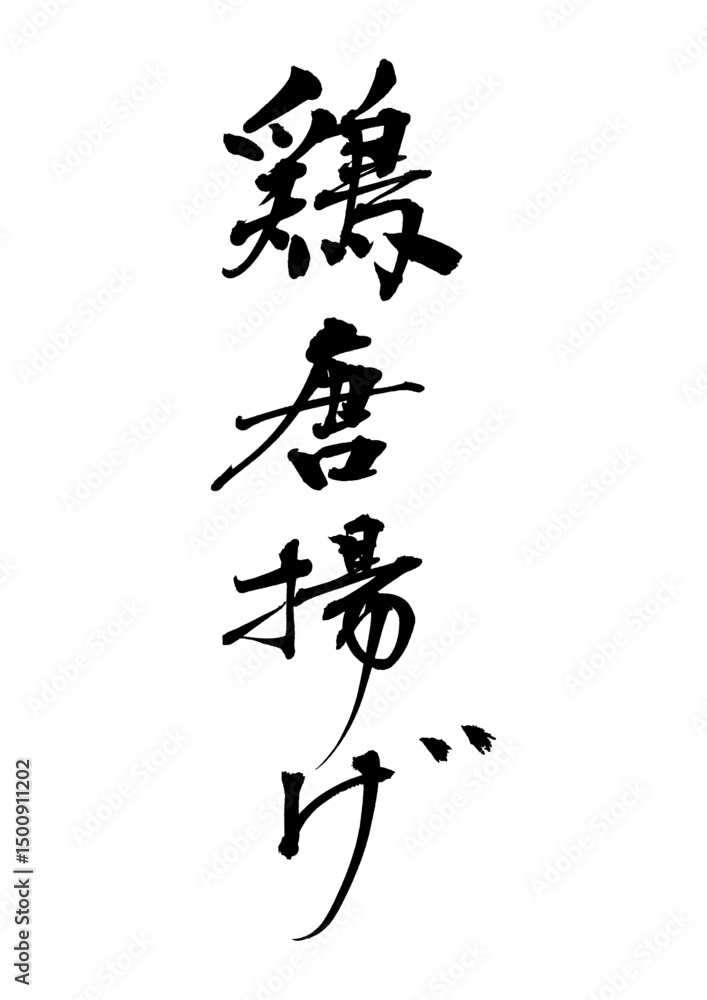 鶏唐揚げ
Adobe Stock | #1500911202